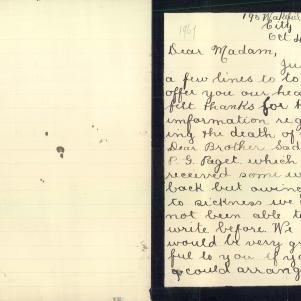 City
Oct 4
1961
Dear Madam,
Ju
a few lines to to
offer you our hea
felt thanks for t
imformation reg
ing the death of
Dear Brother Sad
P. G. Paget. which
received some w
back but owing
to sickness we
not been able to
write before. We
would be very gr
ful to you if yo
could arrang